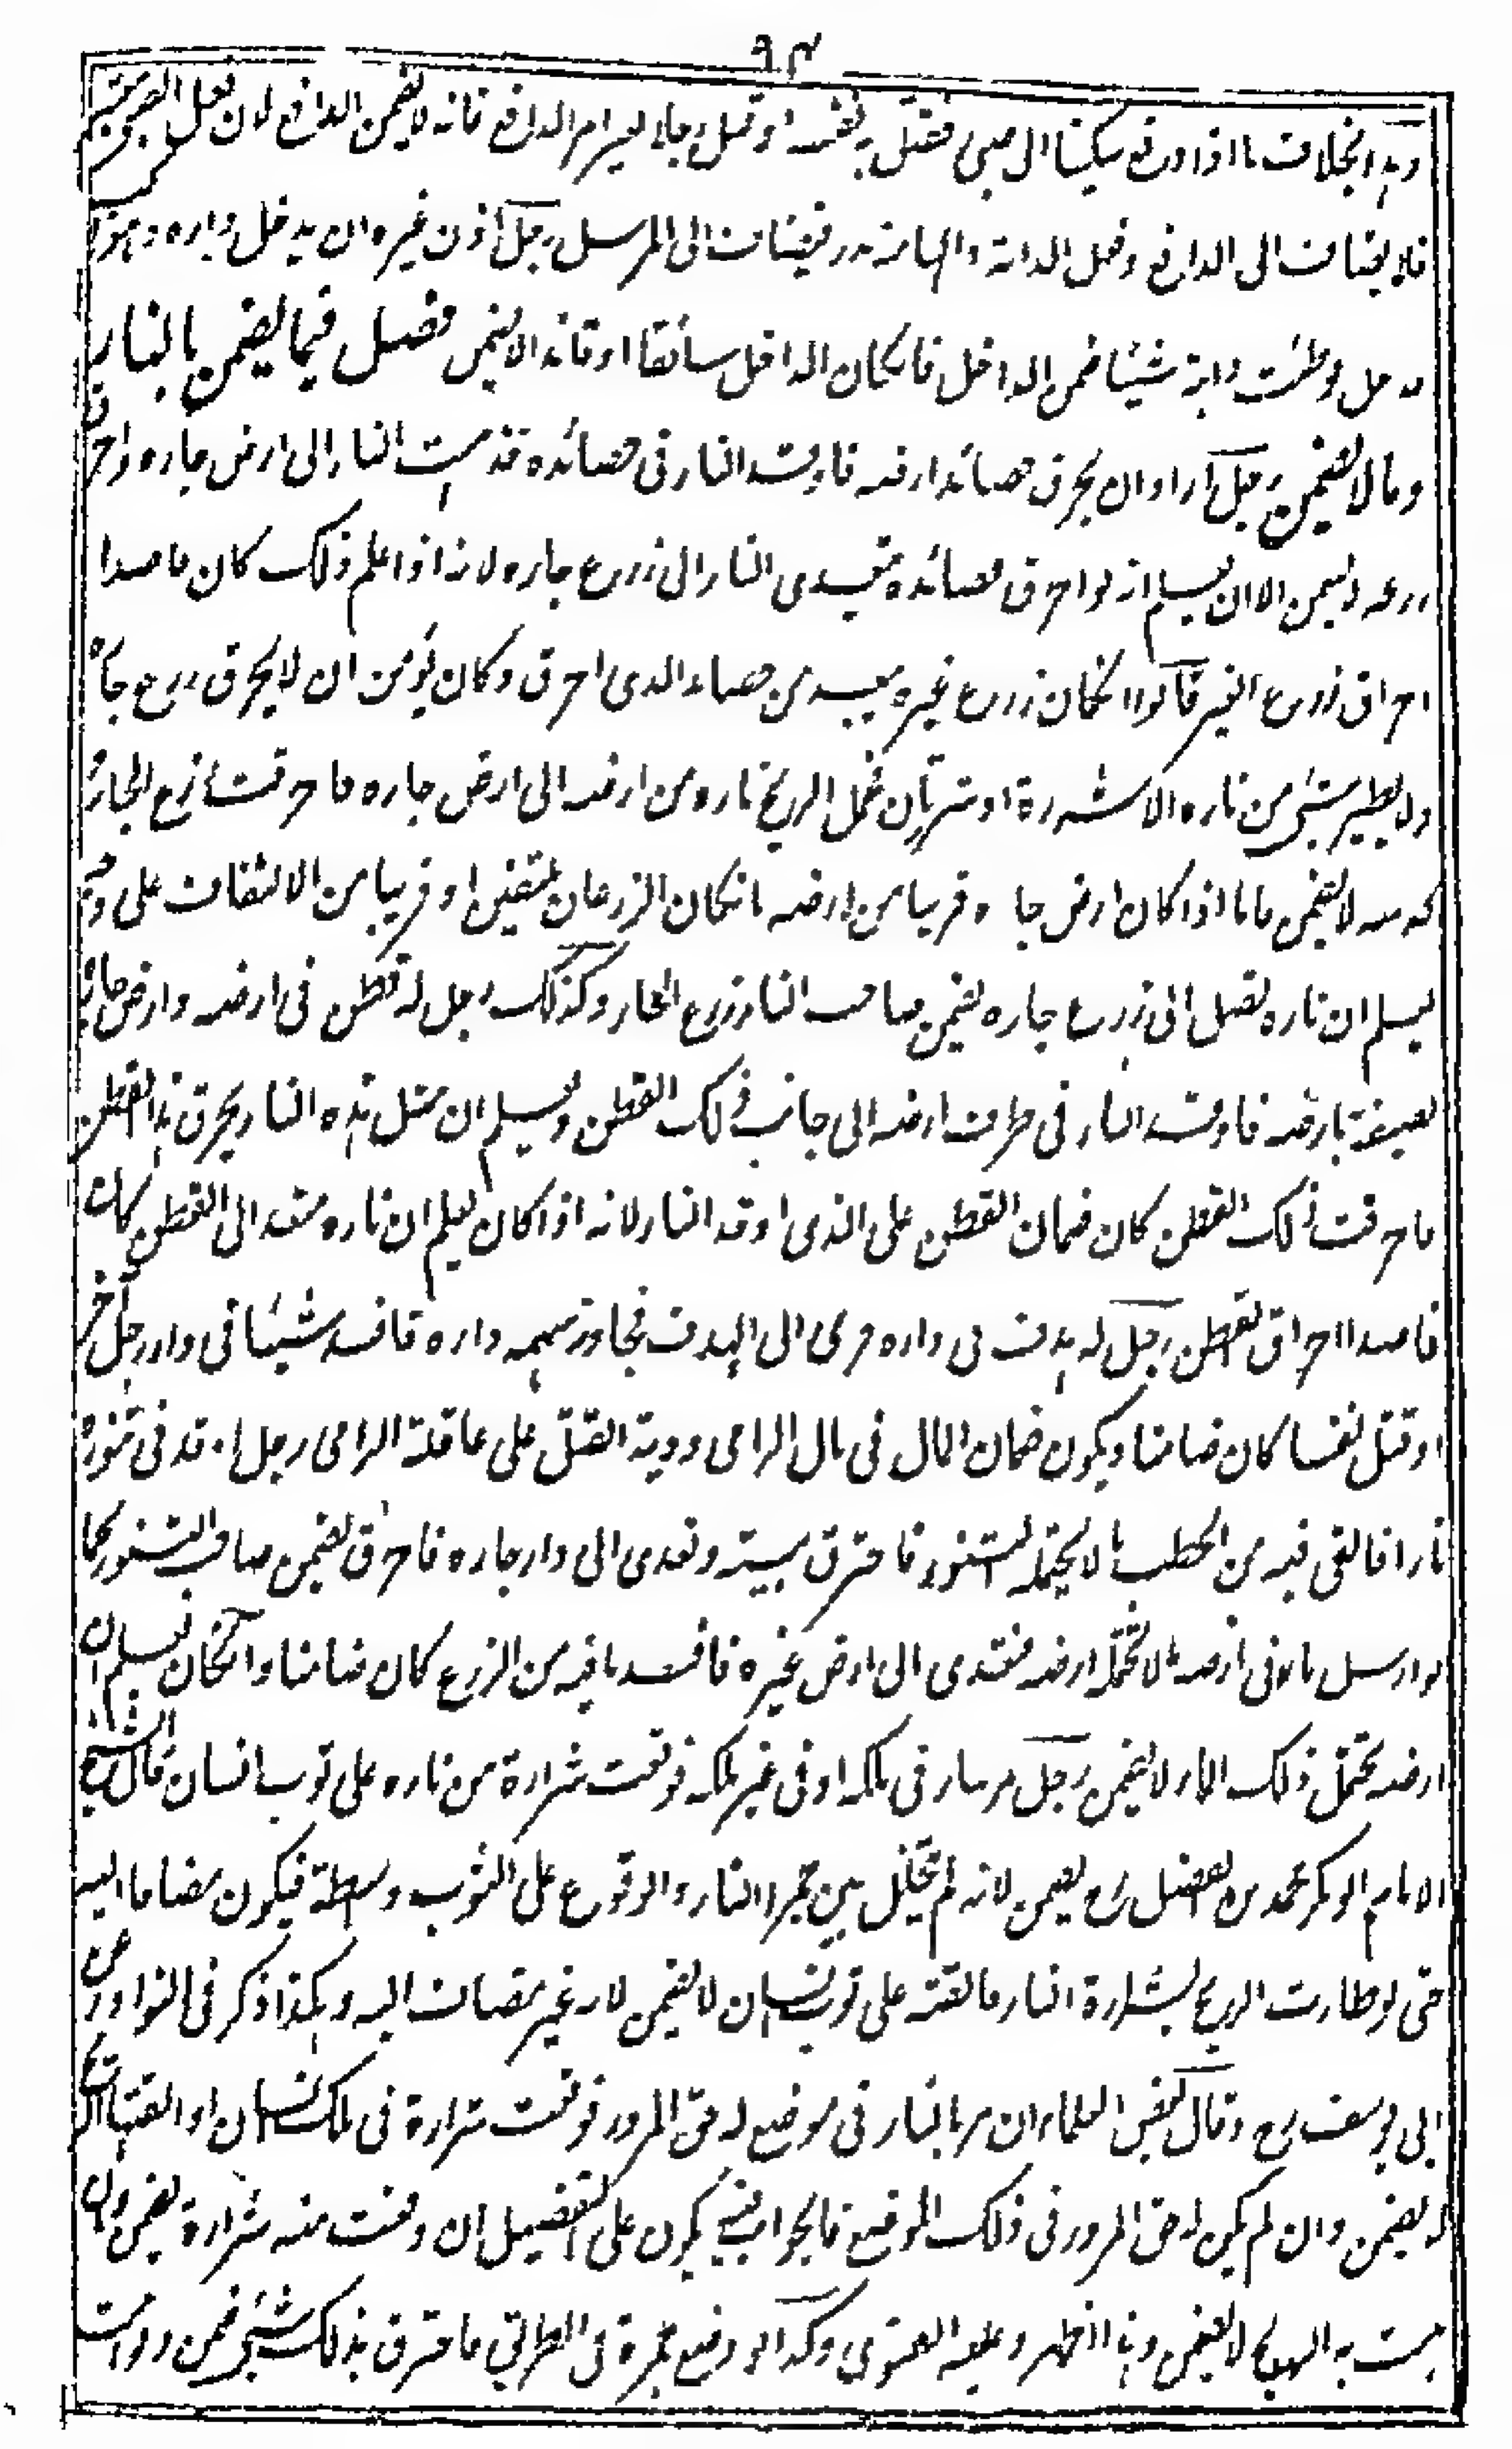 ٩٣
وهذا بخلاف ما اذا دفع سكينا الى صبي فقتل به نفسه او قتل رجلا لم يرام الدافع فانه لا يضمن الدافع لان فعل الصبي معتبر
فلا يضاف الى الدافع وفعل الدابة والبهائم هدر فيضاف الى المرسل رجل اذن غيره ان يدخل داره وهو راكب
فدخل وطئت دابة شيئا ضمن الداخل فانكان الداخل سائقا او قائدا لا يضمن فصل فيما يضمن بالنار
وما لا يضمن رجل اراد ان يحرق حصائد ارضه فاوقد النار في حصائده فذهبت النار الى ارض جاره واحرق
زرعه لا يضمن الا ان يعلم انه لو احرق حصائده يتعدى النار الى زرع جاره لانه اذا علم ذلك كان قاصدا
احراق زرع الغير قالوا انكان زرع غيره يبعد من حصائد الذي احرق وكان يؤمن ان لا يحرق زرع جاره
ولا يطير شئ من ناره الا شررة او شررتان فحمل الريح ناره من ارضه الى ارض جاره فاحرقت زرع الجار
لا يضمن فاما اذا كان ارض جاره قريبا من ارضه بانكان الزرعان ملتفين او قريبا من الالتفاف على وجه
يعلم ان ناره تصل الى زرع جاره يضمن صاحب النار زرع الجار وكذلك رجل له قطن في ارضه وارض جاره
لصيقة بارضه فاوقد النار في طرف ارضه الى جانب ذلك القطن ويعلم ان مثل هذه النار يحرق هذا القطن
فاحرقت ذلك القطن كان ضمان القطن على الذي اوقد النار لانه اذا كان يعلم ان ناره متعد الى القطن كان
قاصدا احراق القطن رجل له هدف في داره فرمى الى الهدف فجاوز سهمه داره فافسد شيئا في دار رجل آخر
او قتل نفسا كان ضامنا ويكون ضمان المال في مال الرامي ودية القتل على عاقلة الرامي رجل اوقد في تنوره
نارا فالقى فيه من الحطب ما لا يحتمله التنور فاحترق بيته وتعدى الى دار جاره فاحرق يضمن صاحب التنور كما
لو ارسل ماء في ارضه ما لا تحتمله ارضه فتعدى الى ارض غيره فافسد ما فيه من الزرع كان ضامنا وانكان يعلم ان
ارضه تحتمل ذلك الماء لا يضمن رجل مر بنار في ملكه او في غير ملكه فوقعت شرارة من ناره على ثوب انسان قال الشيخ
الامام ابو بكر محمد بن الفضل رح يضمن لانه لم يتخلل بين حمله النار والوقوع على الثوب واسطة فيكون مضافا اليه
حتى لو طارت الريح بشرارة النار فالقته على ثوب انسان لا يضمن لانه غير مضاف اليه وهكذا ذكر في النوادر عن
ابي يوسف رح وقال بعض العلماء ان مر بالنار في موضع له حق المرور فوقعت شرارة في ملك انسان او القتها الريح
لا يضمن وان لم يكن له حق المرور في ذلك الموضع فالجواب فيه يكون على التفصيل ان وقعت منه شرارة يضمن وان
هبت به الريح لا يضمن وهذا اظهر وعليه الفتوى وكذا لو وضع جمرة في الطريق فاحترق بذلك شئ ضمن